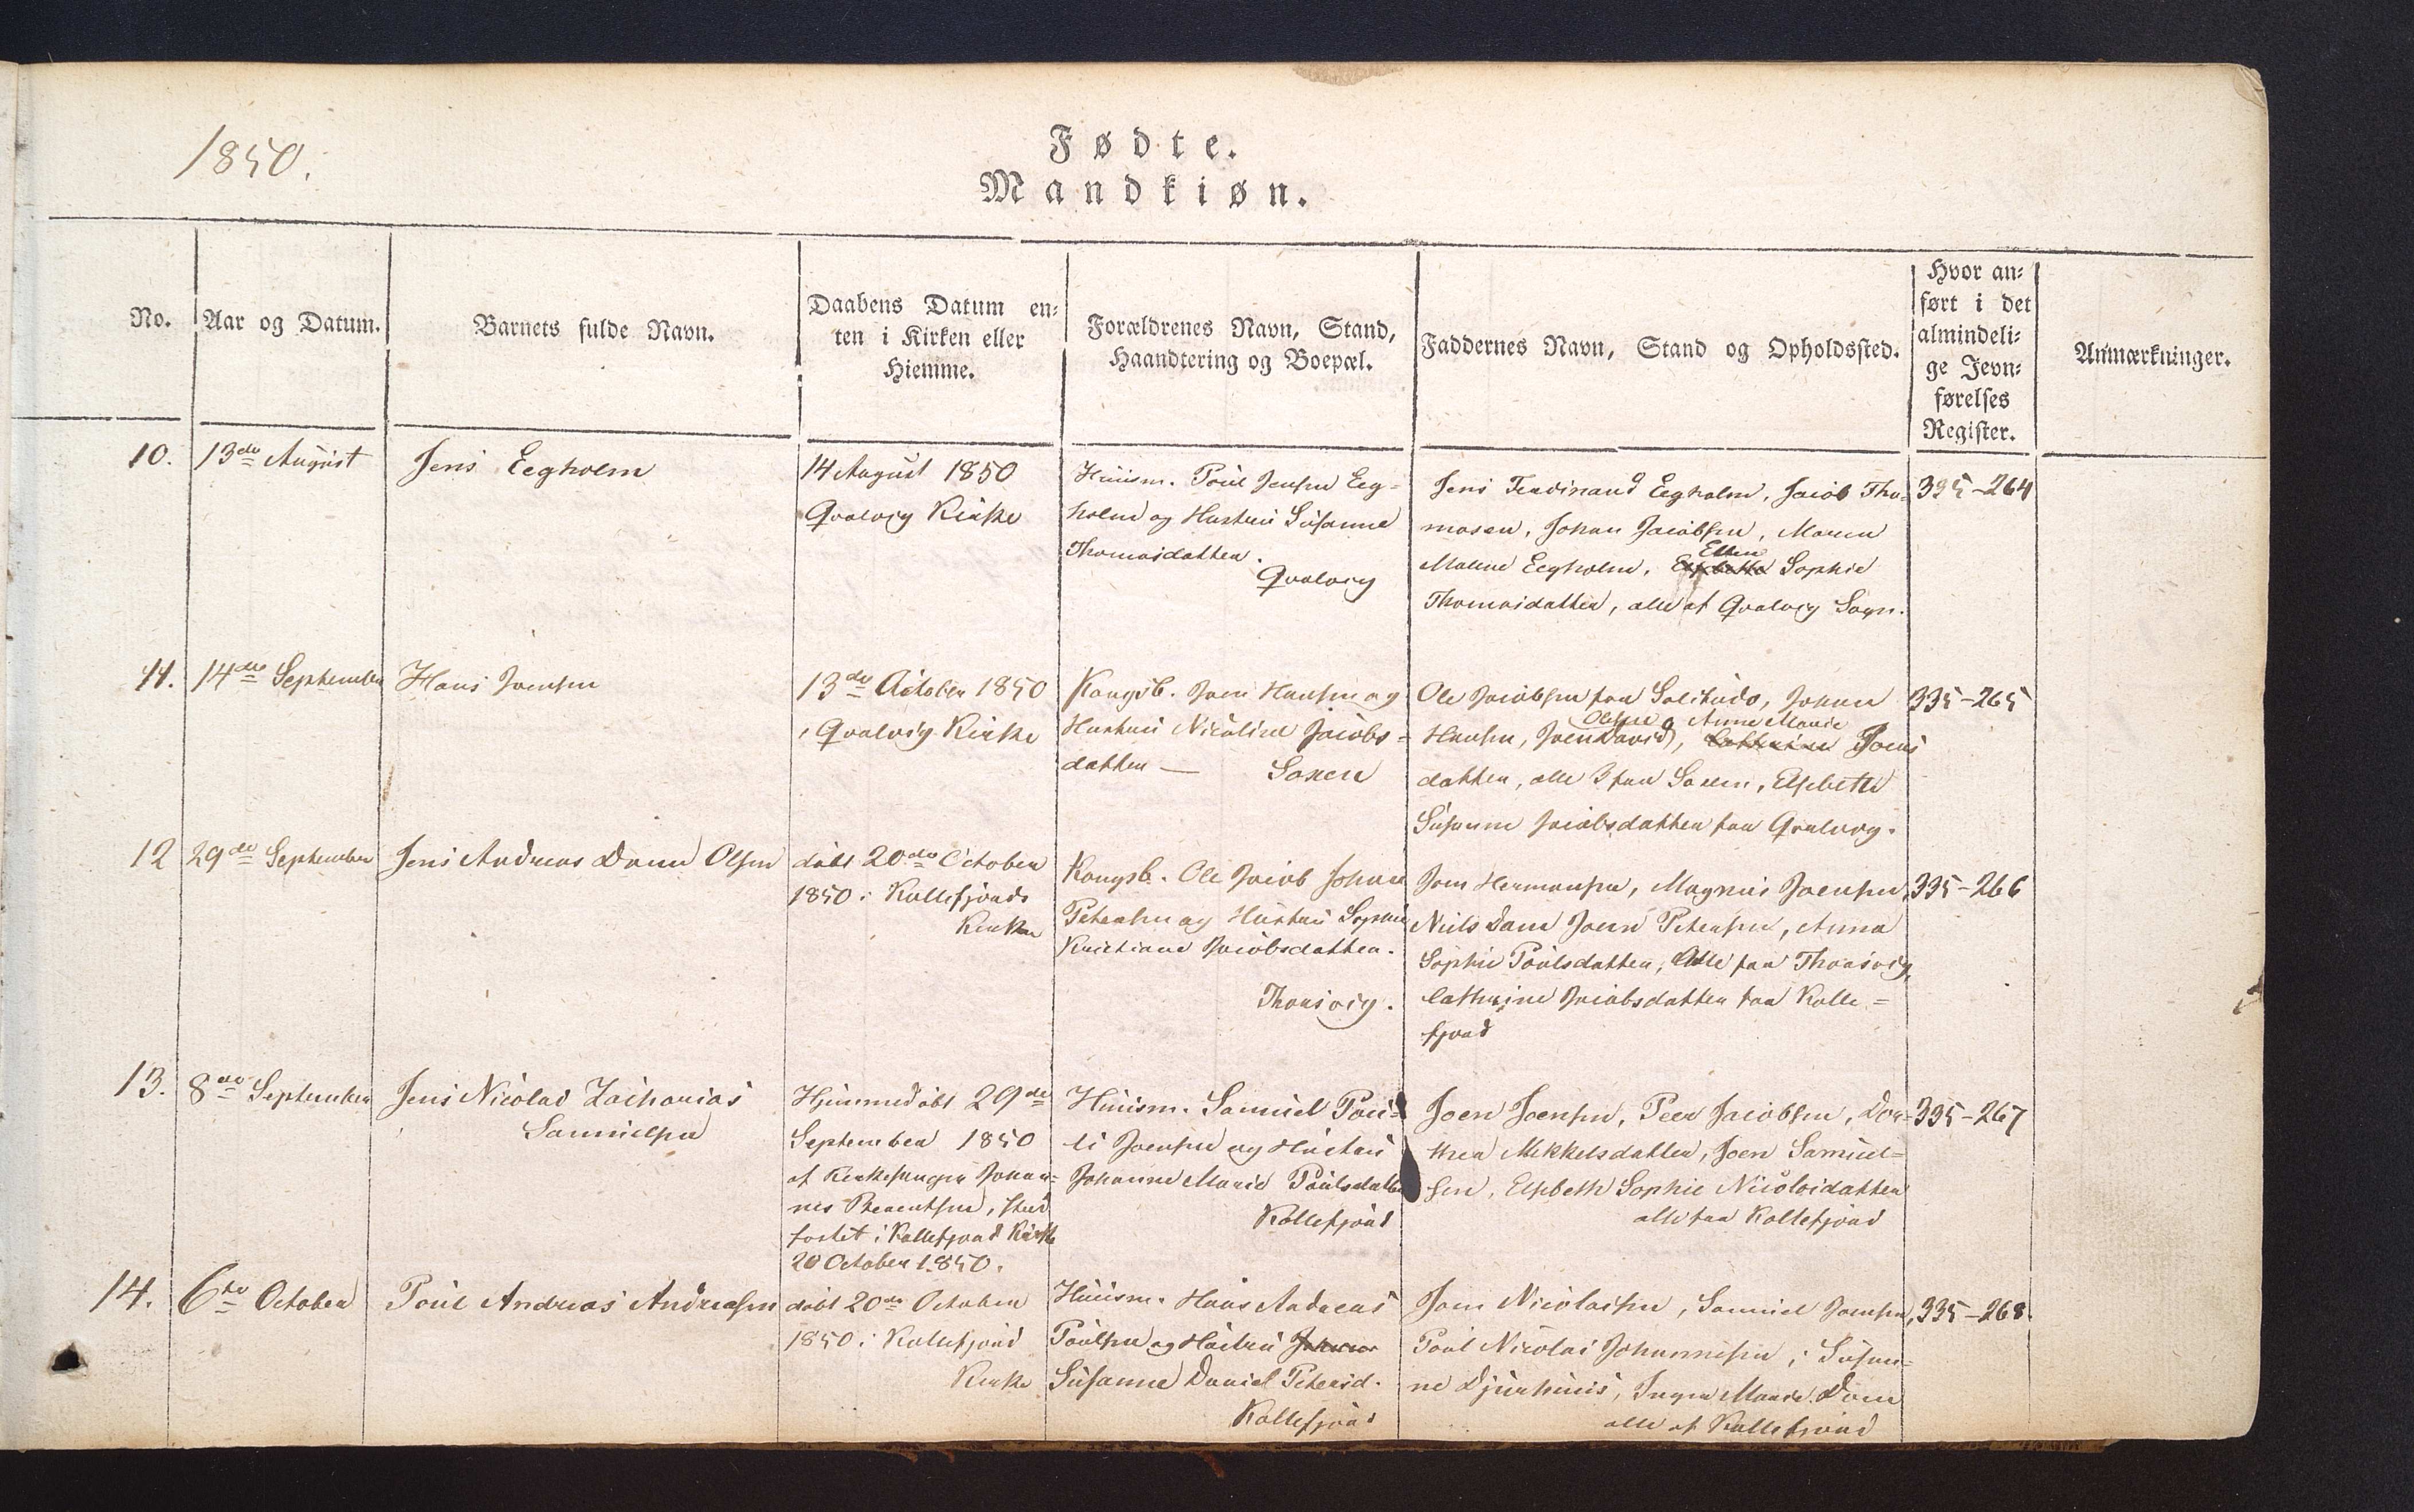 1850.
Fødte.
Mandkiøn.
No.
Aar og Datum.
Barnets fulde Navn.
Daabens Datum en-
ten i Kirken eller
Hiemme.
Forældrenes Navn, Stand,
Haandtering og Boepæl.
Faddernes Navn, Stand og Opholdssted.
Hvor an-
ført i det
almindeli-
ge Jevn-
førelses
Register.
Anmærkninger.
10.
13de August
Jens Eegholm
14 August 1850
Qvalvig Kirke
Huusm. Poul Jensen Eeg-
holm og Hustru Susanne
Thomasdatter.
Qvalvig
Jens Ferdinand Eegholm, Jacob Tho-
masen, Johan Jacobsen, Maren
Malene Eegholm, Ellen Sophie
Thomasdatter, alle af Qvalvig Sogn.
335-264
11.
14de September
Hans Joensen
13de October 1850
i Qvalvig Kirke
Kongsb. Joen Hansen og
Hustru Nicoline Jacobs-
datter — Saxen
Ole Jacobsen fra Solitudo, Johan
Hansen, Joen David Olesen, Anne Marie Joens
datter, alle 3 fra Saxen, Elsebeth
Susanne Jacobsdatter fra Qvalvig.
335-265
12
29de September
Jens Andreas Dam Olsen
døbt 20de October
1850 i Kollefjords
Kirke
Kongsb. Ole Jacob Johan
Petersen og Hustru Sophie
Kristiane Jacobsdatter.
Thorsvig.
Joen Hermansen, Magnus Joensen,
Niels Dam Joen Petersen, Anna
Sophie Poulsdatter, Alle fra Thorsvig,
Cathrine Jacobsdatter fra Kolle-
fjord
335-266
13.
8de September
Jens Nicolai Zacharias
Samuelsen
Hjemmedøbt 29de
September 1850
af Kirkesanger Johan-
nes , stad
fæstet i Kollefjord Kirke
20 October 1850.
Huusm. Samuel Pou-
li Joensen og Hustru
Johanne Marie Poulsdatter
Kollefjord
Joen Joensen, Peer Jacobsen, Dor-
thea Mikkelsdatter, Joen Samuel-
sen, Elsebeth Sophie Nicolaidatter
alle fra Kollefjord
335-267
14.
6te October
Poul Andreas Andreasen
døbt 20de October
1850 i Kollefjord
Kirke
Huusm. Hans Andreas
Poulsen og Hustru
Susanne Daniel Petersd.
Kollefjord
Joen Nicolaisen, Samuel Joensen,
Poul Nicolai Johannesen, Susan-
ne Djurhuus, Inger Marie Dam
alle af Kollefjord
335-268.